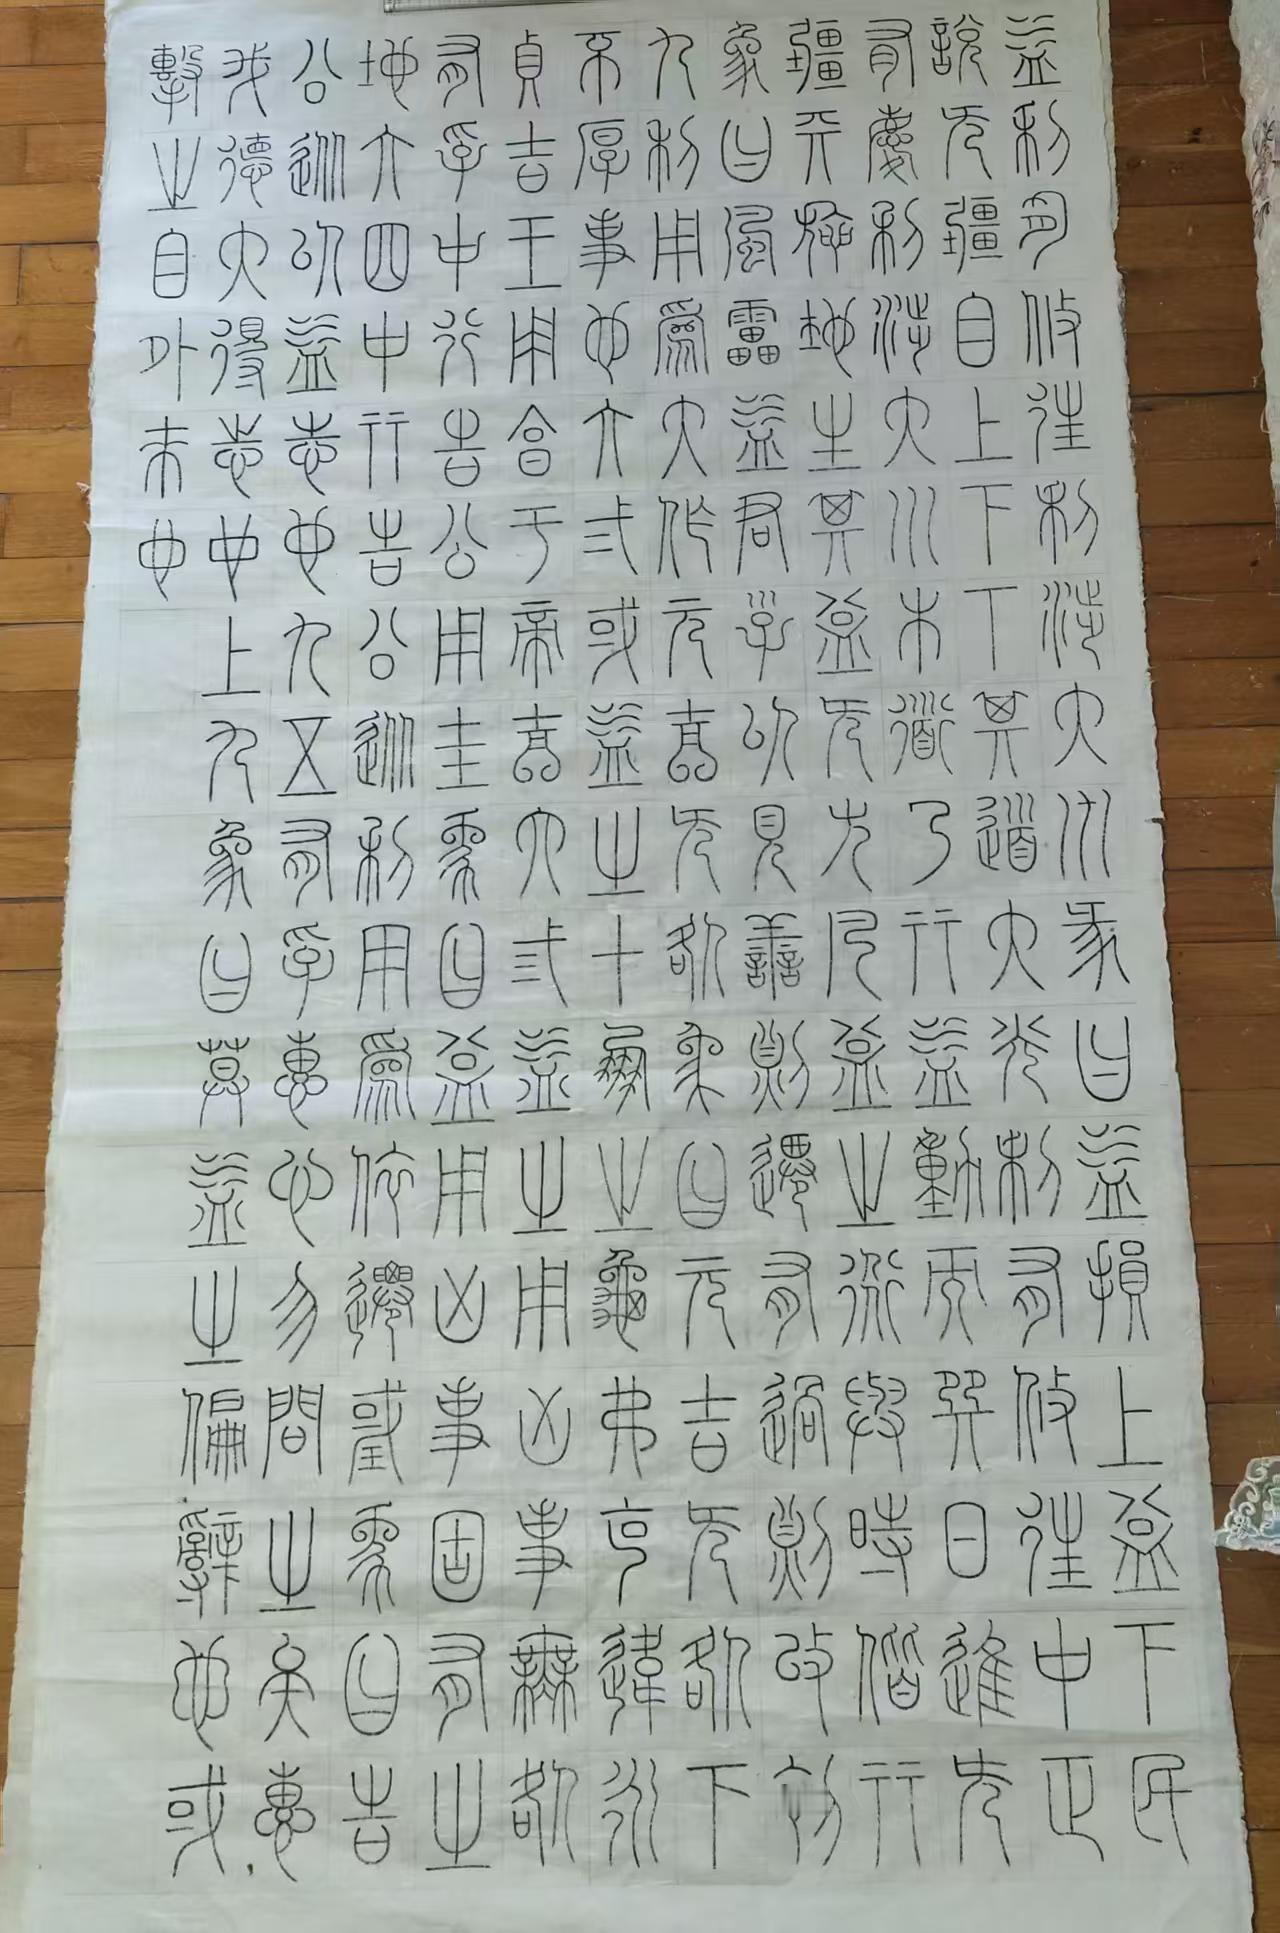 益利有攸往利涉大川彖曰益損上益下民
說无疆自上下下其道大光利有攸往中正
有慶利涉大川木道乃行益動而巽日進无
疆天施地生其益无方凡益之道與時偕行
象曰風雷益君子以見善則遷有過則改初
九利用爲大作元吉无咎象曰元吉无咎下
不厚事也六二或益之十朋之龜弗克違永
貞吉王用享于帝吉六三益之用凶事無咎
有孚中行告公用圭象曰益用凶事固有之
也六四中行告公從利用爲依遷國象曰告
公從以益志也九五有孚惠心勿問之矣惠
我德大得志也上九象曰莫益之偏辭也或
擊之自外來也